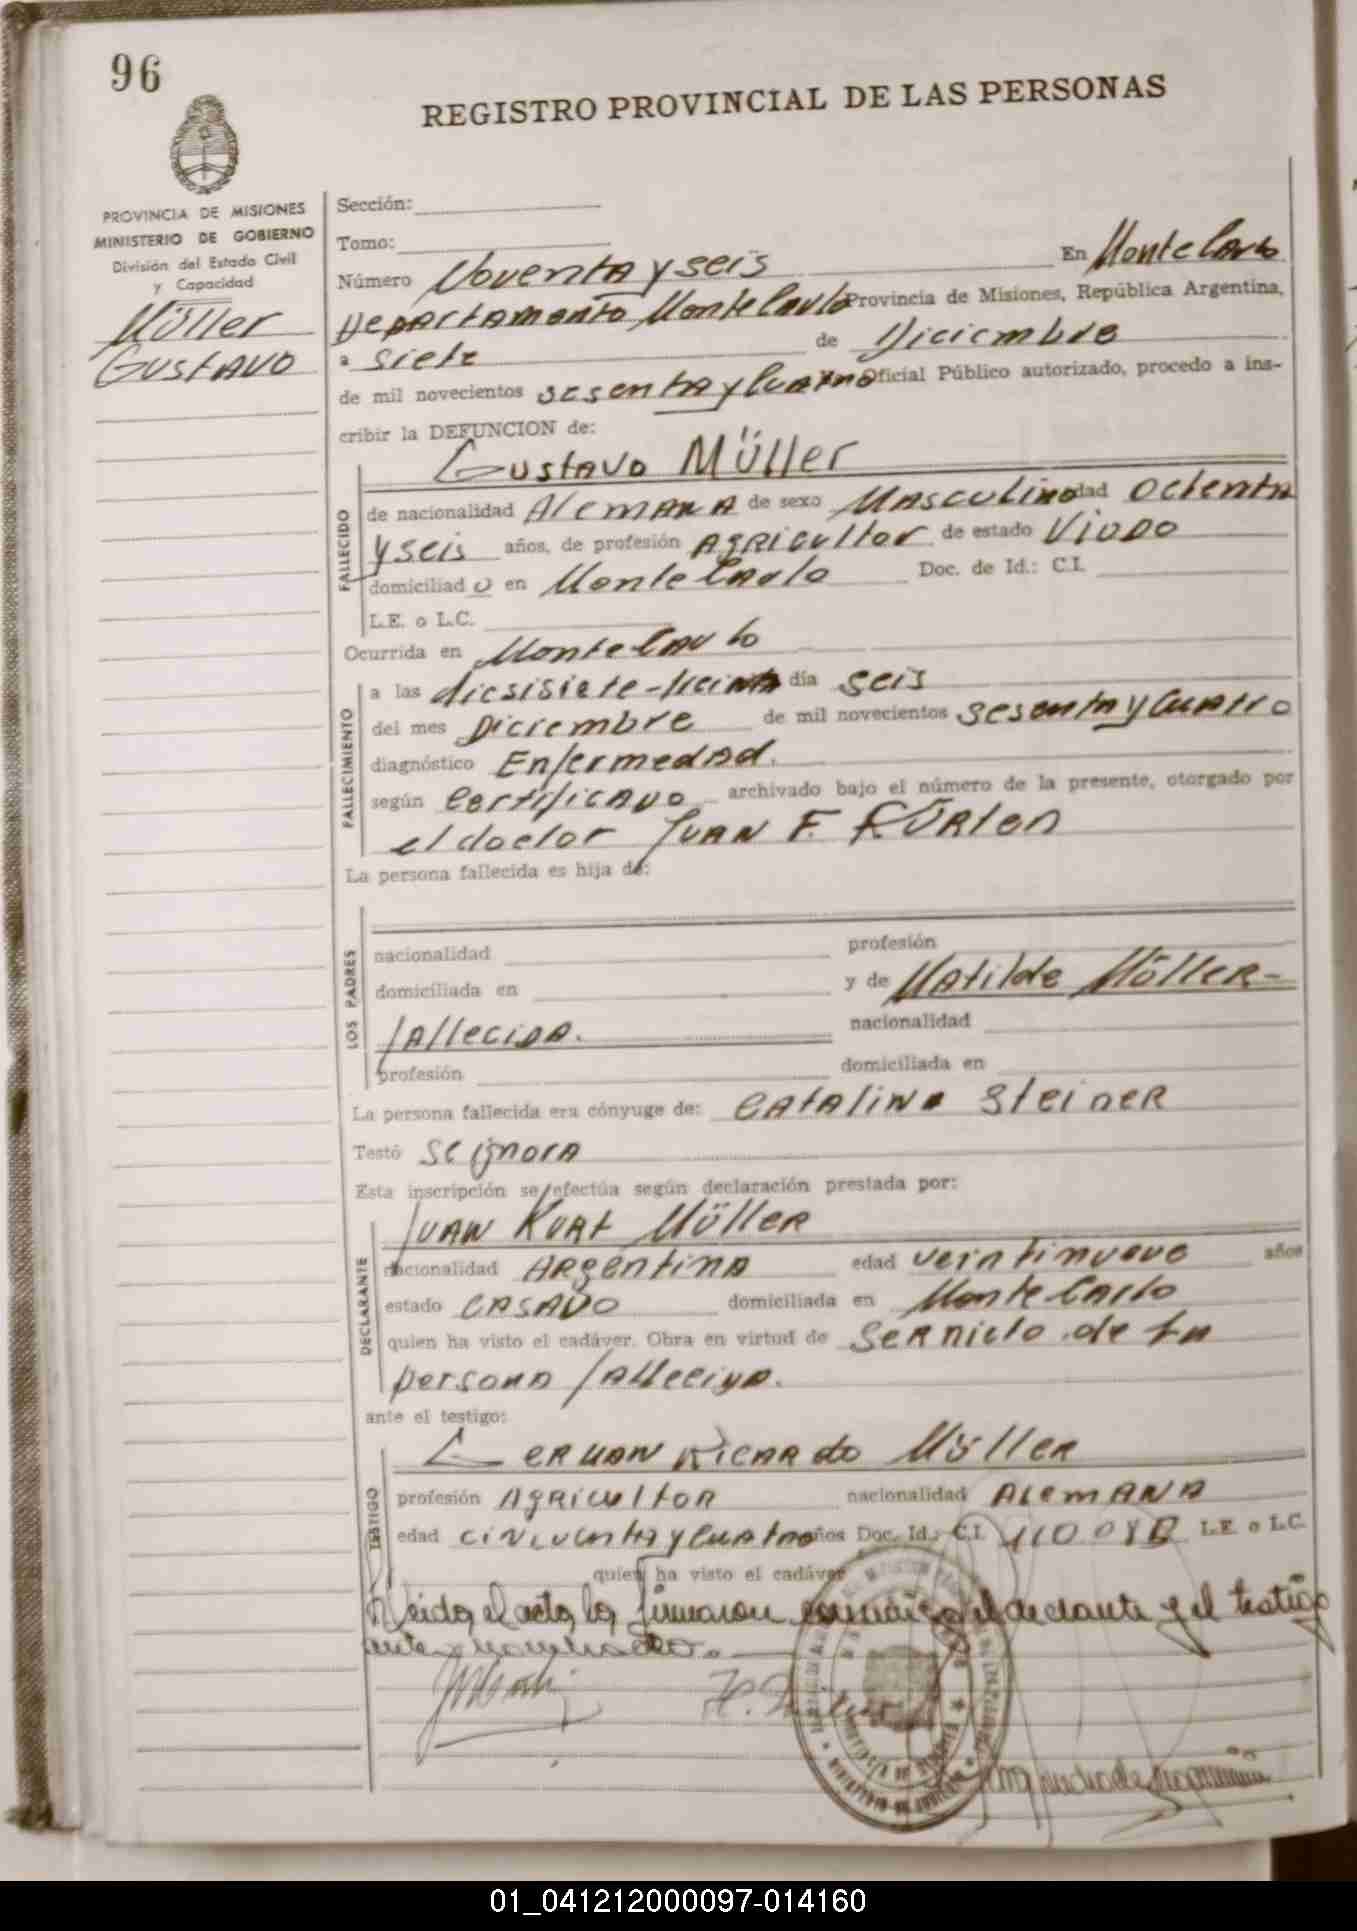 96
REGISTRO PROVINCIAL DE LAS PERSONAS
PROVINCIA DE MISIONES
MINISTERIO DE GOBIERNO
División del Estado Civil
y Capacidad
Müller
Gustavo
Sección:
Tomo:
Número Noventa y seis En Monte Carlo
Departamento Monte Carlo Provincia de Misiones, República Argentina,
a siete de Diciembre
de mil novecientos sesenta y Cuatro Oficial Público autorizado, procedo a ins-
cribir la DEFUNCION de:
Gustavo Müller
FALLECIDO
de nacionalidad Alemana de sexo Masculino edad Ochenta
y seis años, de profesión Agricultor de estado Viudo
domiciliado en Monte Carlo Doc. de Id.: C.I.
L.E. o L.C.
Ocurrida en Monte Carlo
FALLECIMIENTO
a las diesisiete-treinta día seis
del mes Diciembre de mil novecientos sesenta y Cuatro
diagnóstico Enfermedad.
según Certificado archivado bajo el número de la presente, otorgado por
el doctor Juan F.
La persona fallecida es hija de:
LOS PADRES
nacionalidad profesión
domiciliada en y de Matilde Müller-
fallecida. nacionalidad
profesión domiciliada en
La persona fallecida era cónyuge de: Catalina Steiner
Testó se ignora
Esta inscripción se efectúa según declaración prestada por:
Juan Kurt Müller
DECLARANTE
nacionalidad Argentina edad veintinueve años
estado Casado domiciliada en Monte Carlo
quien ha visto el cadáver. Obra en virtud de de la
persona fallecida.
ante el testigo:
German Ricardo Müller
TESTIGO
profesión Agricultor nacionalidad Alemana
edad cincuenta y Cuatro años Doc. Id.: C.I. L.E. o L.C.
quien ha visto el cadáver
Leida el acta la firmaron conmigo el declarante y el testigo
ante nombrado.
01_041212000097-014160